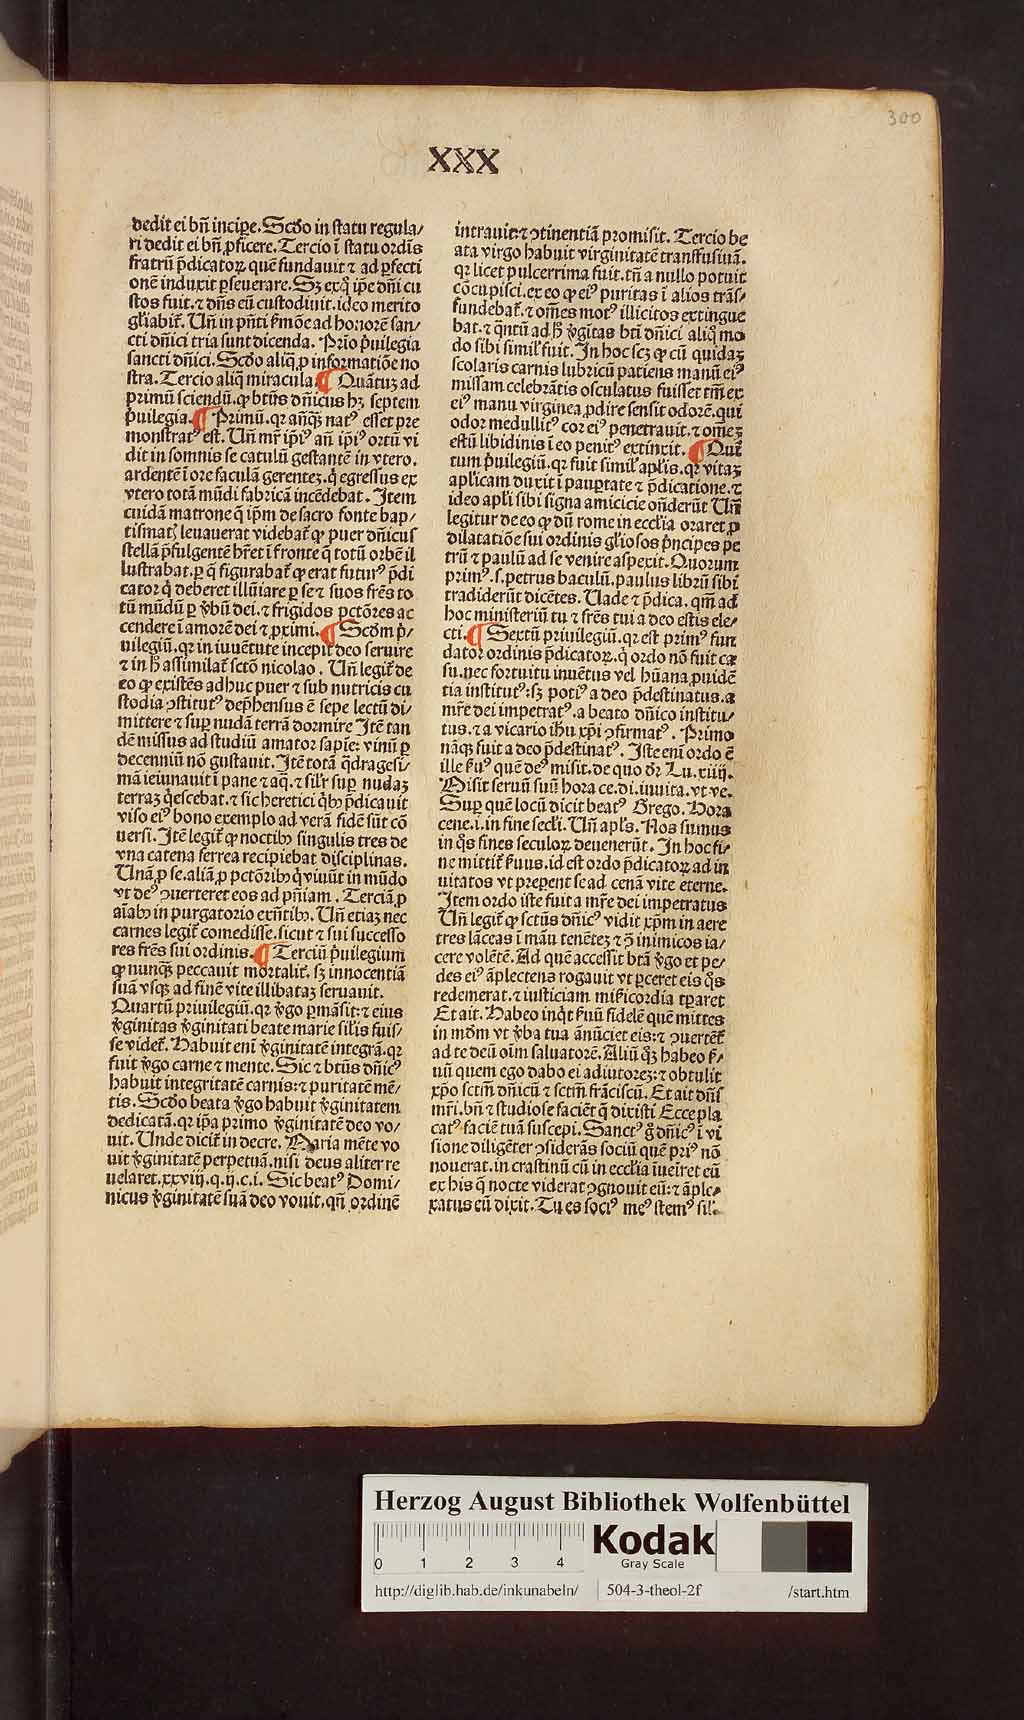 300
XXX
dedit ei bn̄ incipe. Scďo in statu regula⸗
ri dedit ei bn̄ ꝓficere. Tercio ī statu ordīs
fratrū p̄dicatoꝝ quē fundauit ⁊ ad ꝑfecti
onē induxit ꝑseuerare. Sꝫ exq̇ ip̄e dn̄i cu
stos fuit. ⁊ dn̄s eū custodiuit. ideo merito
gl̄iabit̄. Un̄ in pn̄ti ẜmōe ad honorē san⸗
cti dn̄ici tria sunt dicenda. Prīo p̄uilegia
sancti dn̄ici. Scďo aliq̄ ꝓ informatiōe no
stra. Tercio aliq̄ miracula ¶ Quātuꝫ ad
primū sciendū. ꝙ btūs dn̄icus hꝫ septem
p̄uilegia. ¶ Primū. qꝛ an̄qꝫ natꝰ esset pre
monstratꝰ est. Un̄ mr̄ ip̄iꝰ an̄ ip̄iꝰ ortū vi
dit in somnis se catulū gestantē in vtero.
ardentē ī ore faculā gerenteꝫ. q̇ egressus ex
vtero totā mūdi fabricā incēdebat. Item
cuidā matrone q̄ ip̄m de sacro fonte bap⸗
tismatꝭ leuauerat videbat̄ ꝙ puer dn̄icus
stellā p̄fulgentē hr̄et ī fronte q̄ totū orbē il
lustrabat. ꝑ q̄ figurabat̄ ꝙ erat futurꝰ p̄di
cator q̇ deberet illūiare ꝑ se ⁊ suos fr̄es to
tū mūdū ꝑ v̄bū dei. ⁊ frigidos pctōres ac
cendere ī amorē dei ⁊ ꝓximi. ¶ Scďm p̄⸗
uilegiū. qꝛ in iuuētute incepit deo seruire
⁊ in h̄ assimilat̄ sctō nicolao. Un̄ legit̄ de
eo ꝙ existēs adhuc puer ⁊ sub nutricis cu
stodia ꝯstitutꝰ dep̄hensus ē sepe lectū di⸗
mittere ⁊ suꝑ nudā terrā dormire Itē tan
dē missus ad studiū amator sapie: vinū ꝑ
decenniū nō gustauit. Itē totā q̄dragesi⸗
mā ieiunauit ī pane ⁊ aq̄. ⁊ sil̄r suꝑ nudaꝫ
terraꝫ q̇escebat. ⁊ sic heretici q̇bꝰ p̄dicauit
viso eiꝰ bono exemplo ad verā fidē sūt cō
uersi. Itē legit̄ ꝙ noctibꝰ singulis tres de
vna catena ferrea recipiebat disciplinas.
Unā ꝓ se. aliā ꝓ pctōribꝰ q̇ viuūt in mūdo
vt deꝰ ꝯuerteret eos ad pn̄iam. Terciā ꝓ
aīabꝰ in purgatorio exn̄tibꝰ. Un̄ etiaꝫ nec
carnes legit̄ comedisse. sicut ⁊ sui successo
res fr̄es sui ordinis. ¶ Terciū p̄uilegium
ꝙ nunqꝫ peccauit mortalit̄. sꝫ innocentiā
suā vsqꝫ ad finē vite illibataꝫ seruauit.
Quartū priuilegiū. qꝛ v̄go ꝑmāsit: ⁊ eius
v̄ginitas v̄ginitati beate marie sil̄is fuis⸗
se videt̄. Habuit eni v̄ginitatē integrā. qꝛ
fuit v̄go carne ⁊ mente. Sic ⁊ btūs dn̄icꝰ
habuit integritatē carnis: ⁊ puritatē mē⸗
tis. Scďo beata v̄go habuit v̄ginitatem
dedicatā. qꝛ ip̄a primo v̄ginitatē deo vo⸗
uit. Unde dicit̄ in decre. Maria mēte vo
uit v̄ginitatē perpetuā. nisi deus aliter re
uelaret. xxviij. q. ij. c. i. Sic beatꝰ Domi⸗
nicus v̄ginitatē suā deo vouit. qn̄ ordinē
intrauit. ⁊ ꝯtinentiā promisit. Tercio be
ata virgo habuit virginitatē transfusiuā.
qꝛ licet pulcerrima fuit. tn̄ a nullo potuit
cōcupisci. ex eo ꝙ eiꝰ puritas ī alios trās⸗
fundebat̄. ⁊ om̄es motꝰ illicitos extingue
bat. ⁊ q̄ntū ad h̄ v̄gītas bti dn̄ici aliq̊ mo
do sibi simil̄ fuit. In hoc scꝫ ꝙ cū quidaꝫ
scolaris carnis lubricū patiens manū eiꝰ
missam celebrātis osculatus fuisset tm̄ ex
eiꝰ manu virginea ꝓdire sensit odorē. qui
odor medullitꝰ cor eiꝰ penetrauit. ⁊ om̄eꝫ
estū libidinis ī eo penitꝰ extinxit. ¶ Quī
tum p̄uilegiū. qꝛ fuit simil̄ apl̄is. qꝛ vitaꝫ
apl̄icam duxit ī pauꝑtate ⁊ p̄dicatione. ⁊
ideo apl̄i sibi signa amicicie on̄derūt Un̄
legitur de eo ꝙ dū rome in eccl̄ia oraret ꝓ
dilatatiōe sui ordinis gl̄iosos p̄ncipes pe
trū ⁊ paulū ad se venire aspexit. Quorum
primꝰ. s. petrus baculū. paulus librū sibi
tradiderūt dicētes. Uade ⁊ p̄dica. qm̄ ad
hoc ministeriū tu ⁊ fr̄es tui a deo estis ele⸗
cti. ¶ Sextū priuilegiū. qꝛ est primꝰ fun
dator ordinis p̄dicatoꝝ. q̇ ordo nō fuit ca
su. nec fortuitu inuētus vel hūana ꝓuidē
tia institutꝰ: sꝫ potiꝰ a deo p̄destinatus. a
mr̄e dei impetratꝰ. a beato dn̄ico institu⸗
tus. ⁊ a vicario ih̄u xp̄i ꝯfirmatꝰ. Primo
nāqꝫ fuit a deo p̄destinatꝰ. Iste eni ordo ē
ille ẜuꝰ quē deꝰ misit. de quo dꝛ Lu. xiiij.
Misit seruū suū hora ce. di. inuita. vt ve.
Suꝑ quē locū dicit beatꝰ Grego. Hora
cene. i. in fine secl̄i. Un̄ apl̄s. Nos sumus
in q̊s fines seculoꝝ deuenerūt. In hoc fi⸗
ne mittit̄ ẜuus. id est ordo p̄dicatoꝝ ad in
uitatos vt preꝑent se ad cenā vite eterne.
Item ordo iste fuit a mr̄e dei impetratus
Un̄ legit̄ ꝙ sctūs dn̄icꝰ vidit xp̄m in aere
tres lāceas ī māu tenēteꝫ ⁊ ꝯ̄ inimicos ia⸗
cere volētē. Ad quē accessit btā v̄go et pe⸗
des eiꝰ āplectens rogauit vt ꝑceret eis q̊s
redemerat. ⁊ iusticiam mīẜicordia tꝑaret
Et ait. Habeo inq̇t ẜuū fidelē quē mittes
in mōm vt v̄ba tua ānūciet eis: ⁊ ꝯuertēt̄
ad te deū oīm saluatorē. Aliū qꝫ habeo ẜ⸗
uū quem ego dabo ei adiutoreꝫ: ⁊ obtulit
xp̄o sctm̄ dn̄icū ⁊ sctm̄ frāciscū. Et ait dn̄s
mr̄i. bn̄ ⁊ studiose faciēt q̄ dixisti Ecce pla
catꝰ faciē tuā suscepi. Sanctꝰ g̊ dn̄icꝰ ī vi
sione diligēter ꝯsiderās sociū quē priꝰ nō
nouerat. in crastinū cū in eccl̄ia īueiret eū
ex his q̄ nocte viderat ꝯgnouit eū: ⁊ āple⸗
xatus eū dixit. Tu es sociꝰ meꝰ stemꝰ sil̄.
Herzog August Bibliothek Wolfenbüttel
0 1 2 3 4
Kodak
Gray Scale
http://diglib.hab.de/inkunabeln/ 504-3-theol-2f /start.htm